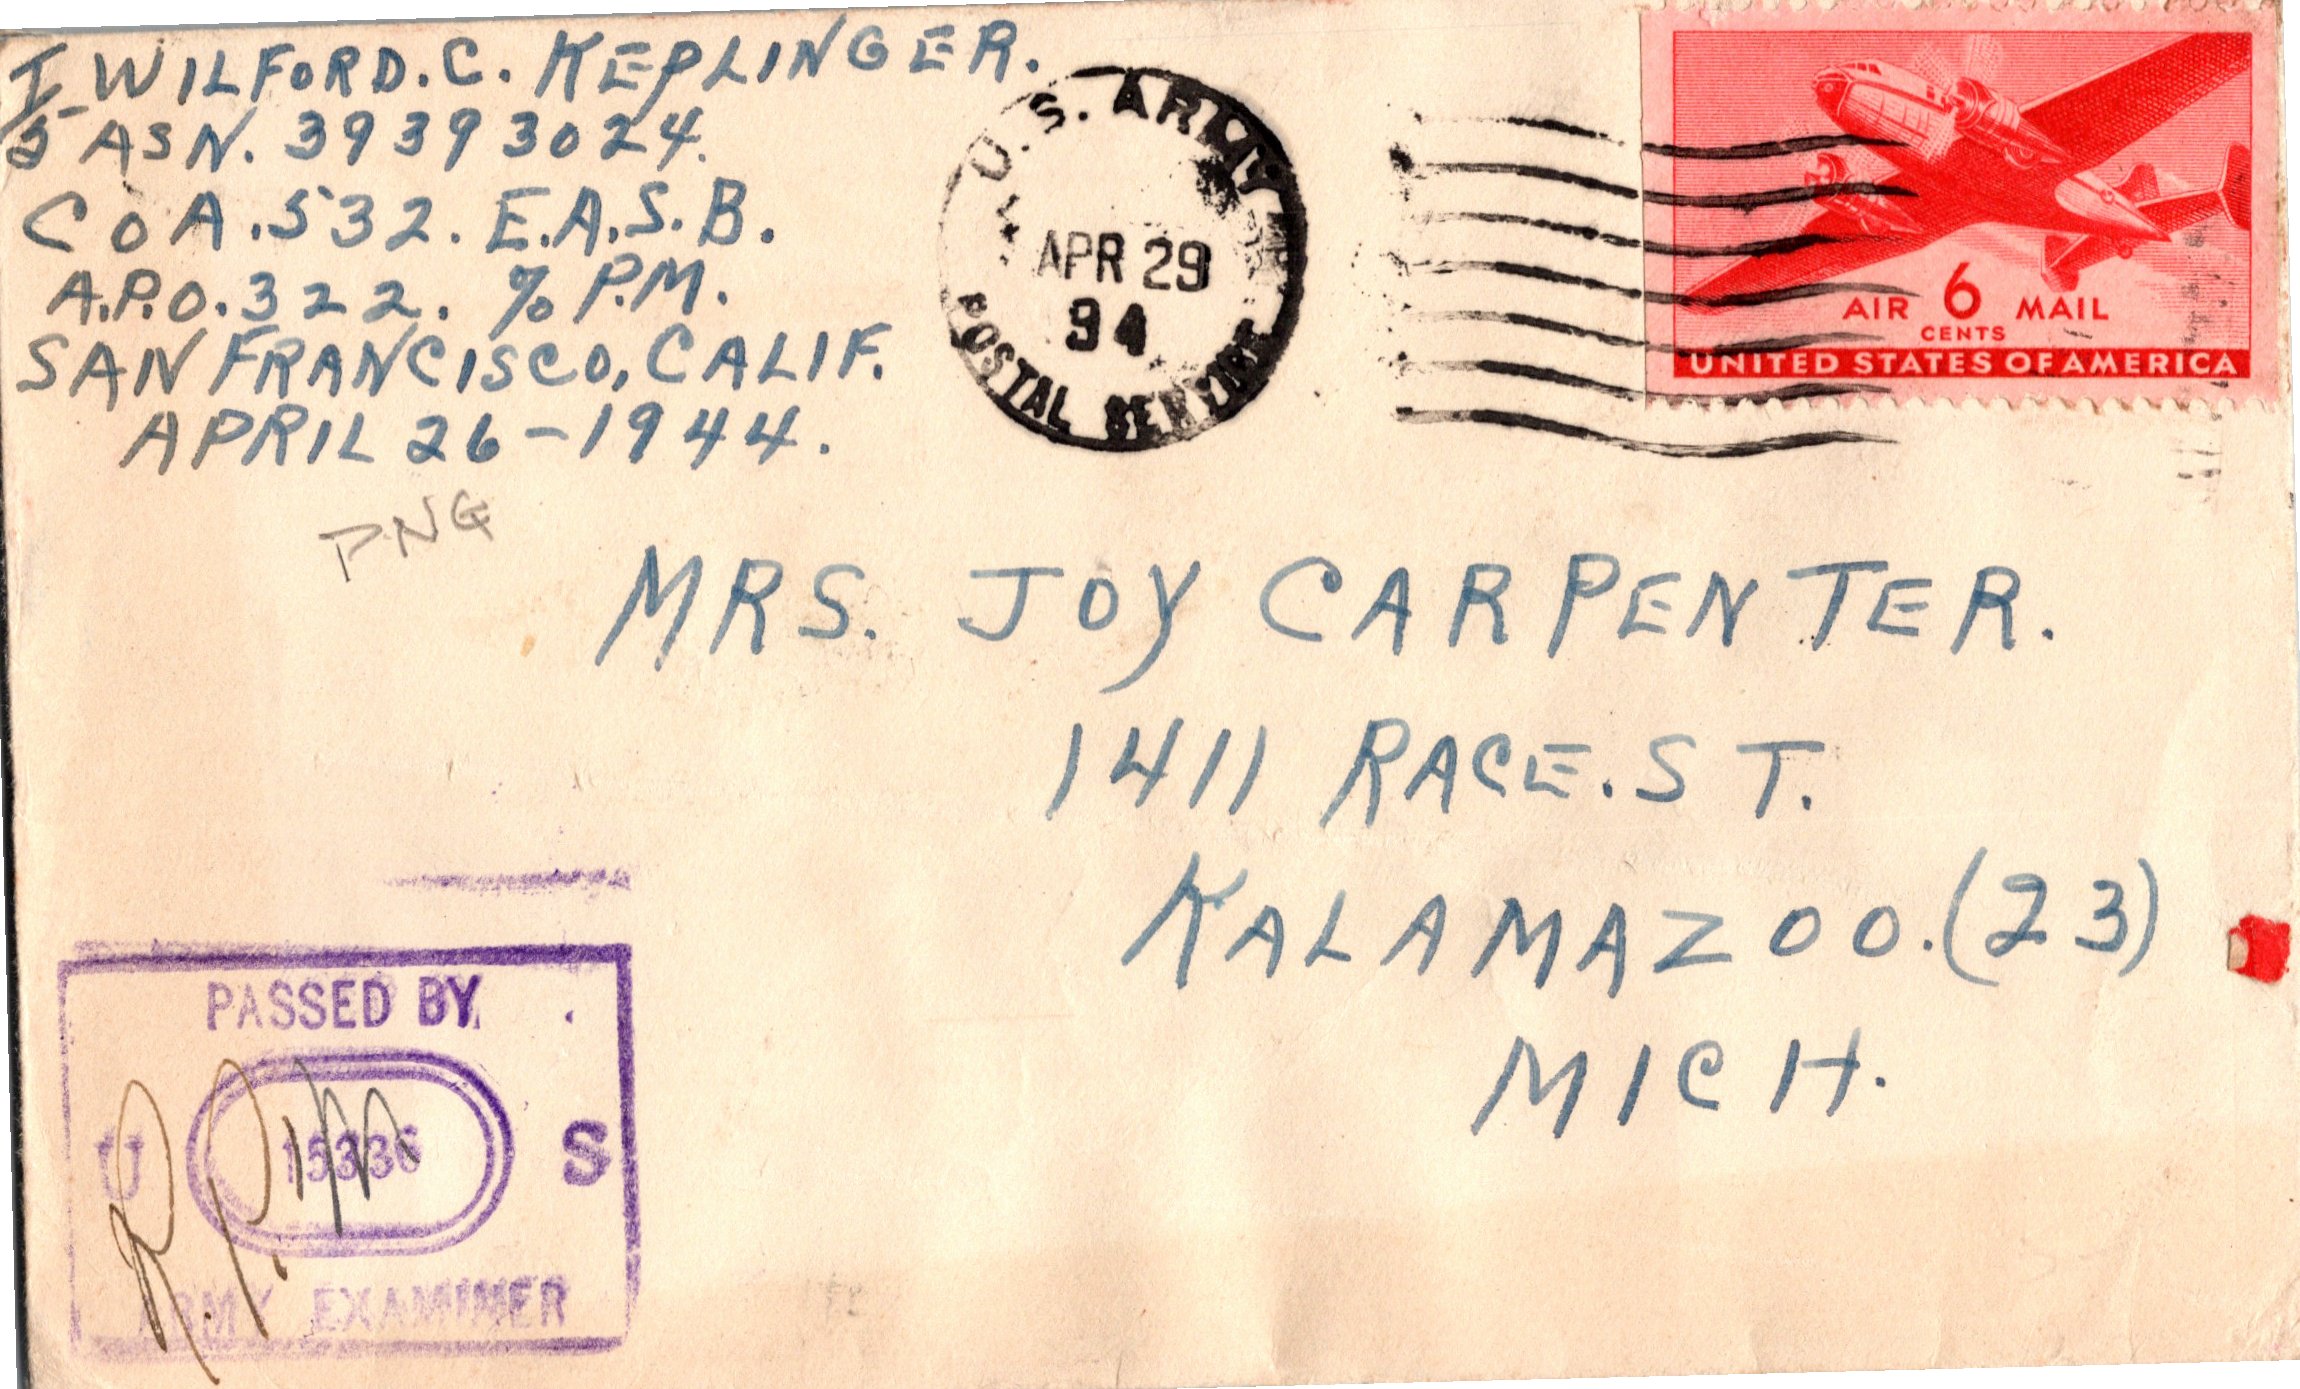 T/5 WILFORD. C. KEPLINGER.
ASN. 39393024.
CO A. 532. E.A.S.B.
A.P.O. 322. % P.M.
SAN FRANCISCO, CALIF.
APRIL 26-1944.
PNG
U.S. ARMY
APR 29
94
POSTAL SERVICE
AIR 6 MAIL
CENTS
UNITED STATES OF AMERICA
MRS. JOY CARPENTER.
1411 RACE. ST.
KALAMAZOO. (23)
MICH.
PASSED BY
U 15336 S
ARMY EXAMINER